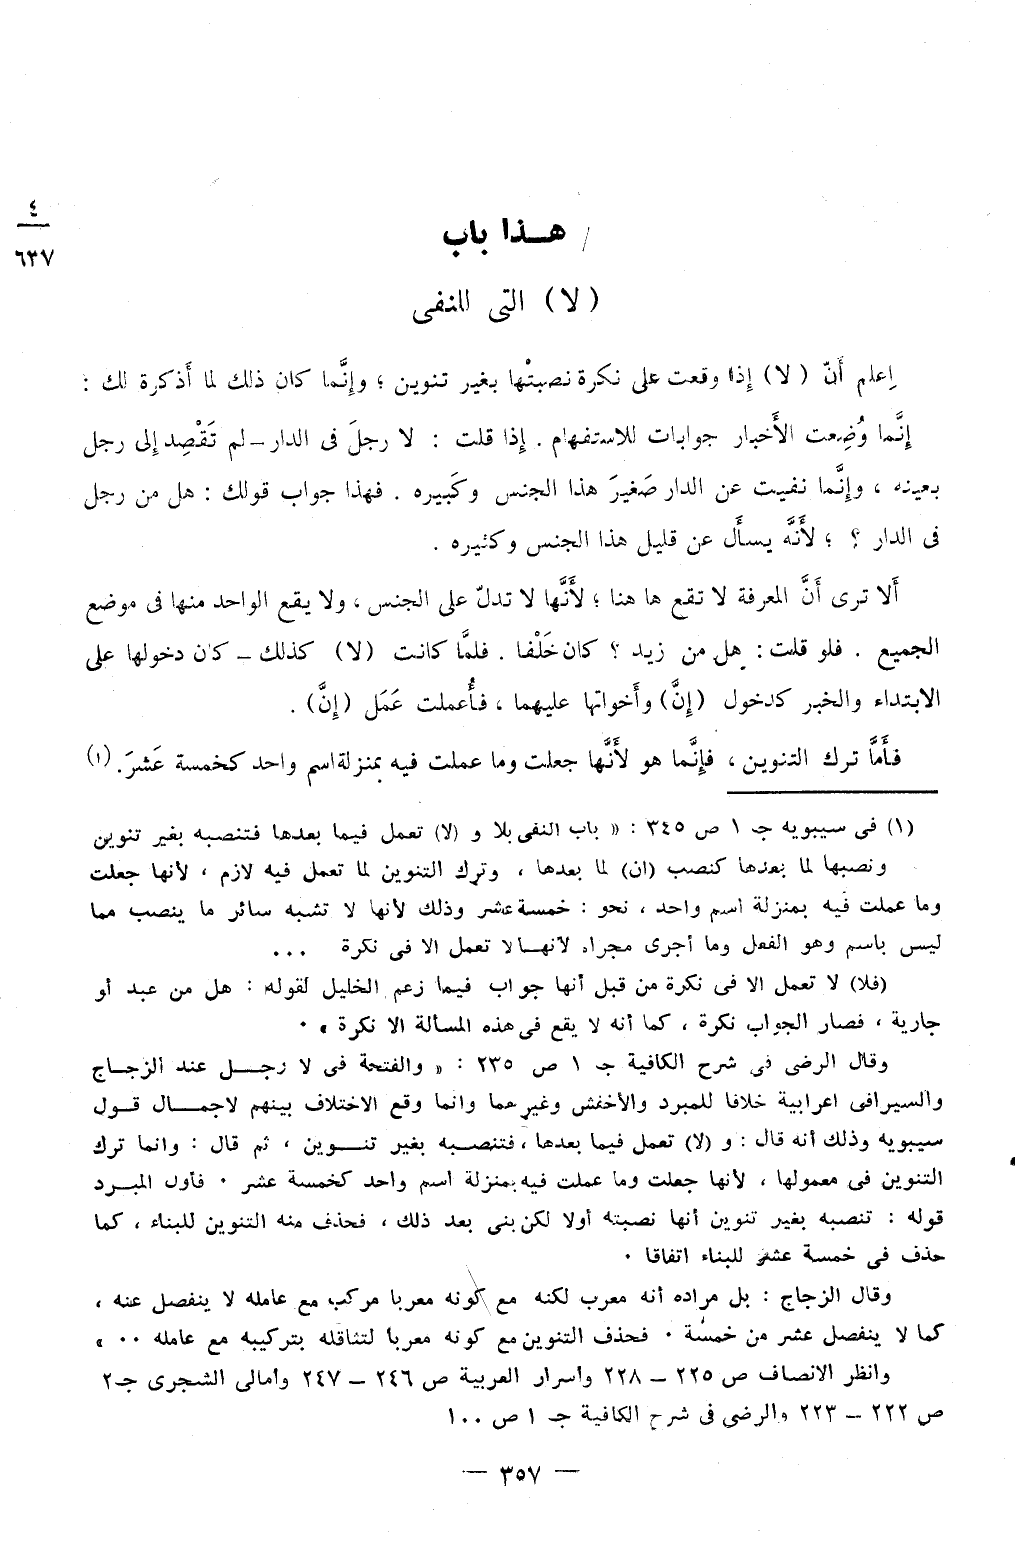 ٤
٦٣٧
/ هــذا باب
( لا ) التى للنفى
اِعلم أَنّ ( لا ) إِذا وقعت على نكرة نصبتْها بغير تنوين ؛ وإِنَّما كان ذلك لما أَذكرة لك :
إِنَّما وُضِعت الأَخبار جوابات للاستفهام . إِذا قلت : لا رجلَ فى الدار – لم تَقْصِد إِلى رجل
بعينه ، وإِنَّما نفيت عن الدار صَغيرَ هذا الجنس وكَبيره . فهذا جواب قولك : هل من رجل
فى الدار ؟ ؛ لأَنَّه يسأَل عن قليل هذا الجنس وكثيره .
أَلا ترى أَنَّ المعرفة لا تقع ها هنا ؛ لأَنَّها لا تدلّ على الجنس ، ولا يقع الواحد منها فى موضع
الجميع . فلو قلت : هل من زيد ؟ كان خَلْفا . فلمَّا كانت (لا) كذلك – كان دخولها على
الابتداء والخبر كدخول (إِنَّ) وأَخواتها عليهما ، فأُعملت عَمَل (إِنَّ) .
فأَمَّا ترك التنوين ، فإِنَّما هو لأَنَّها جعلت وما عملت فيه بمنزلة اسم واحد كخمسة عَشَرَ. (١)
(١) فى سيبويه جـ ١ ص ٣٤٥ : « باب النفى بلا و (لا) تعمل فيما بعدها فتنصبه بغير تنوين
ونصبها لما بعدها كنصب (ان) لما بعدها ، وترك التنوين لما تعمل فيه لازم ، لأنها جعلت
وما عملت فيه بمنزلة اسم واحد ، نحو : خمسة عشر وذلك لأنها لا تشبه سائر ما ينصب مما
ليس باسم وهو الفعل وما أجرى مجراه لأنهــا لا تعمل الا فى نكرة ...
(فلا) لا تعمل الا فى نكرة من قبل أنها جواب فيما زعم الخليل لقوله : هل من عبد أو
جارية ، فصار الجواب نكرة ، كما أنه لا يقع فى هذه المسألة الا نكرة » ٠
وقال الرضى فى شرح الكافية جـ ١ ص ٢٣٥ : « والفتحة فى لا رجــل عند الزجــاج
والسيرافى اعرابية خلافا للمبرد والأخفش وغيرهما وانما وقع الاختلاف بينهم لاجمــال قــول
سيبويه وذلك أنه قال : و (لا) تعمل فيما بعدها ، فتنصــبه بغير تنــوين ، ثم قال : وانما ترك
التنوين فى معمولها ، لأنها جعلت وما عملت فيه بمنزلة اسم واحد كخمسة عشر ٠ فأول المبــرد
قوله : تنصبه بغير تنوين أنها نصبته أولا لكن بنى بعد ذلك ، فحذف منه التنوين للبناء ، كما
حذف فى خمسة عشر للبناء اتفاقا ٠
وقال الزجاج : بل مراده أنه معرب لكنه مع كونه معربا مركب مع عامله لا ينفصل عنه ،
كما لا ينفصل عشر من خمسة ٠ فحذف التنوين مع كونه معربا لتثاقله بتركيبه مع عامله ٠٠ »
وانظر الانصاف ص ٢٢٥ – ٢٢٨ وأسرار العربية ص ٢٤٦ – ٢٤٧ وأمالى الشجرى جـ٢
ص ٢٢٢ – ٢٢٣ والرضى فى شرح الكافية جـ ١ ص ١٠٠
— ٣٥٧ —